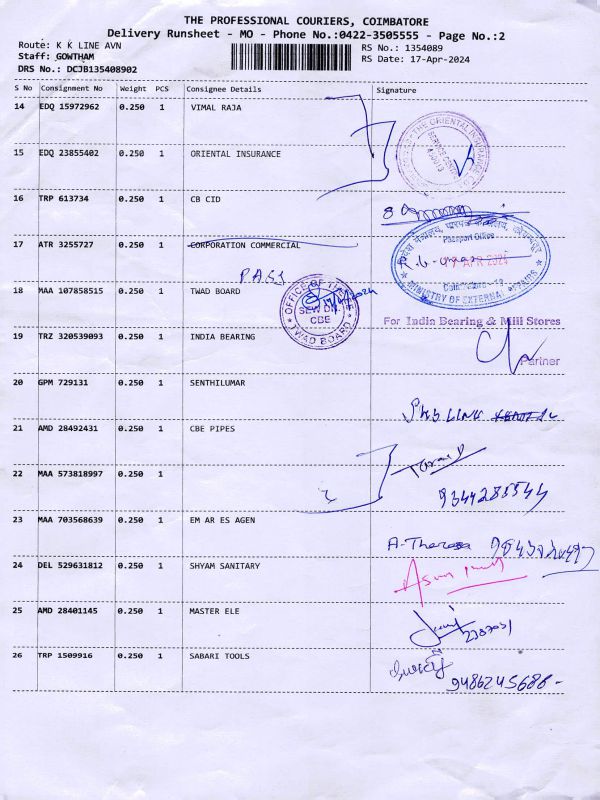 THE PROFESSIONAL COURIERS, COIMBATORE
Delivery Runsheet - MO - Phone No.:0422-3505555 - Page No.:2
Route: K K LINE AVN
RS No.: 1354089
Staff: GOWTHAM
RS Date: 17-Apr-2024
DRS No.: DCJB135408902
S No Consignment No Weight PCS Consignee Details Signature
14 EDQ 15972962 0.250 1 VIMAL RAJA
15 EDQ 23855402 0.250 1 ORIENTAL INSURANCE
16 TRP 613734 0.250 1 CB CID
17 ATR 3255727 0.250 1 CORPORATION COMMERCIAL
Passport Office
APR 2024
MINISTRY OF EXTERNAL AFFAIRS
PASS
18 MAA 107858515 0.250 1 TWAD BOARD
OFFICE OF
CBE
TWAD BOARD
For India Bearing & Mill Stores
19 TRZ 320539093 0.250 1 INDIA BEARING
Partner
20 GPM 729131 0.250 1 SENTHILUMAR
21 AMD 28492431 0.250 1 CBE PIPES
22 MAA 573818997 0.250 1
9344285544
23 MAA 703568639 0.250 1 EM AR ES AGEN
24 DEL 529631812 0.250 1 SHYAM SANITARY
25 AMD 28401145 0.250 1 MASTER ELE
26 TRP 1509916 0.250 1 SABARI TOOLS
9486245688-